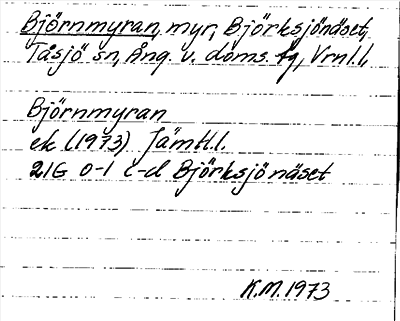 Björnmyran, myr, Björksjönäset,
Tåsjö sn, Ång. v. doms. tg, Vrnl. l.
Björnmyran
ek (1973) Jämtl. l.
21G 0-1 c-d Björksjönäset
K.M. 1973